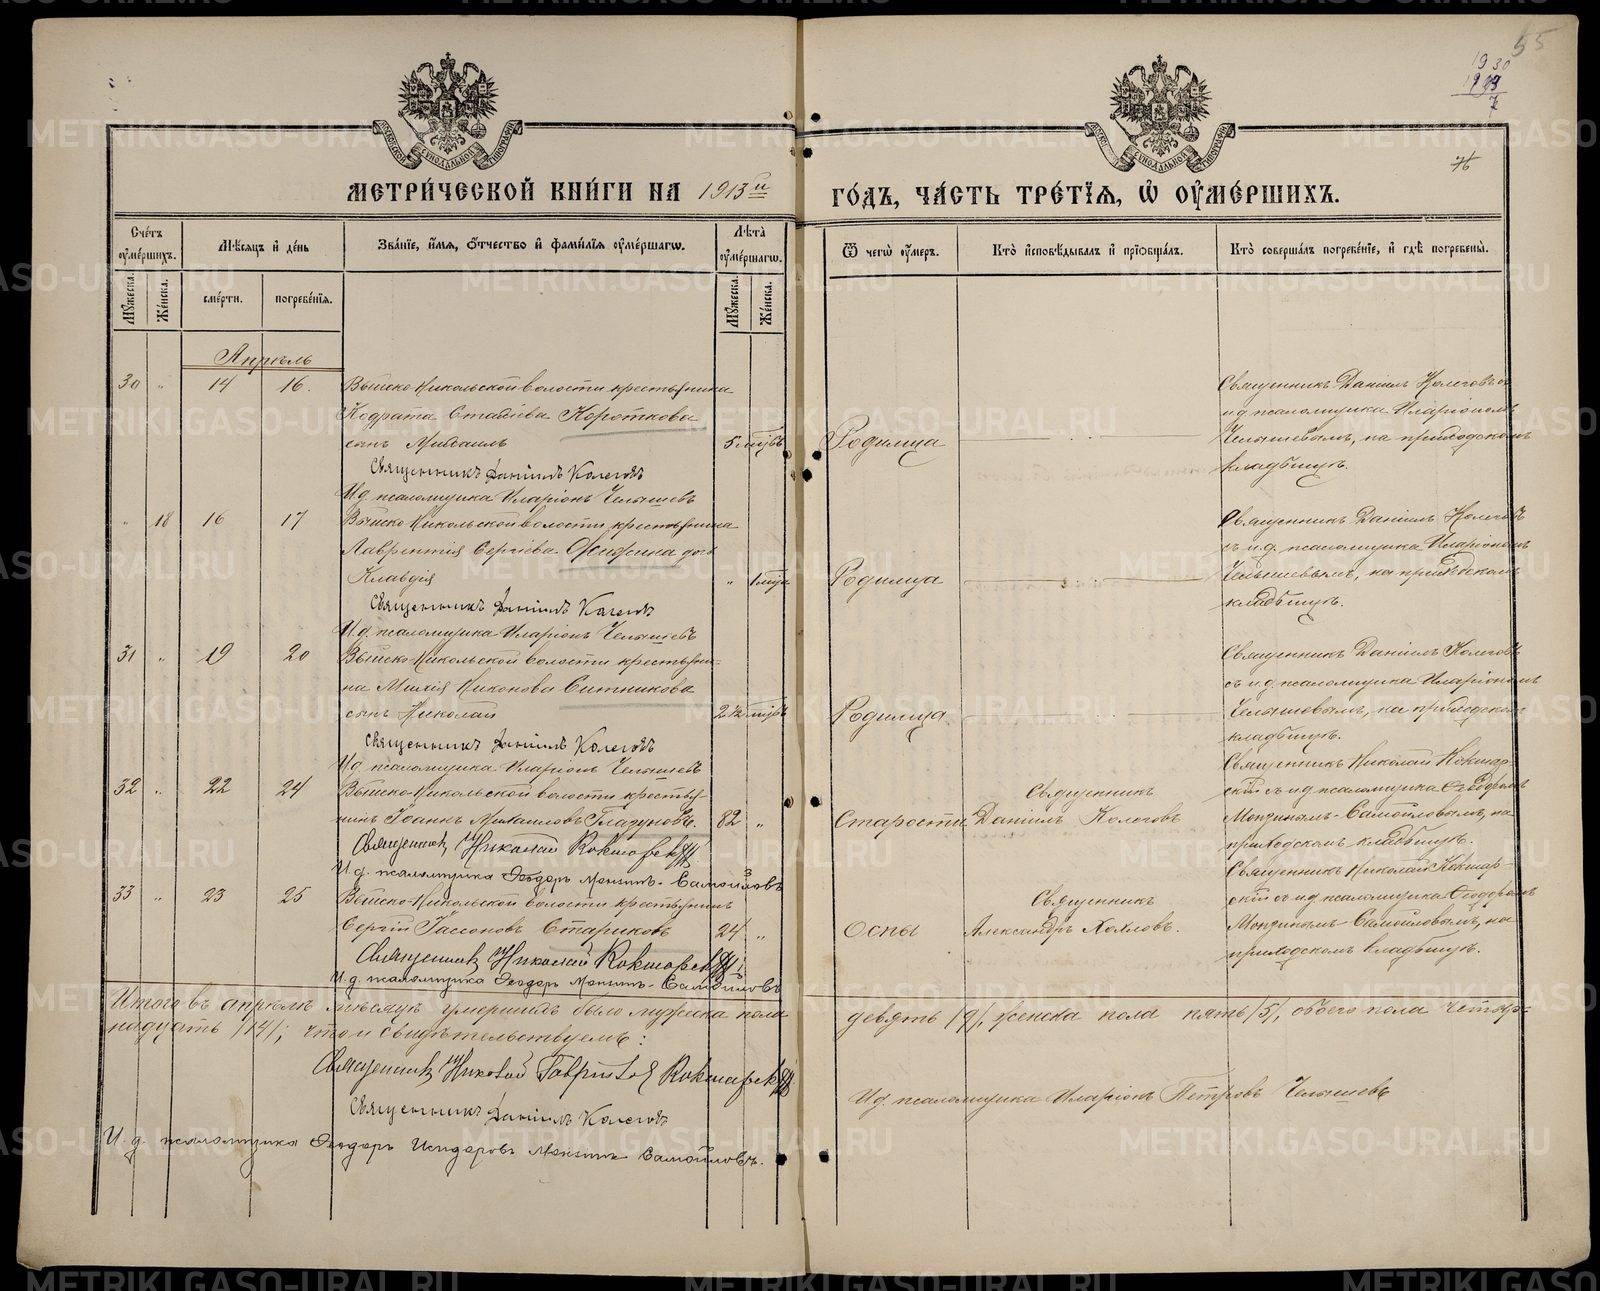 55
1930
76
МЕТРИ́ЧЕСКОЙ КНИ́ГИ НА 1913й ГО́ДЪ, ЧА́СТЬ ТРЕ́ТІЯ, Ѡ ОУМЕ́РШИХЪ.
Сче́тъ оуме́ршихъ.
Мѣсяцъ и де́нь
Зва́ніе, и́мя, о́тчество и фами́лія оуме́ршагѡ.
Лѣта̀ оуме́ршагѡ.
Ѿ чегѡ̀ оу́меръ.
Кто̀ исповѣ́дывалъ и прїѡбща́лъ.
Кто̀ соверша́лъ погребе́ніе, и гдѣ̀ погребены̀.
Мꙋжеска.
Же́нска.
сме́рти.
погребе́нїя.
Мꙋжеска.
Же́нска.
Апрѣль
30 " 14 16. Выйско-Никольской волости крестьянина
Кодрата Короткова
сынъ Михаилъ 5 Родимца
Священникъ Даніилъ Колеговъ
И.д. псаломщика Иларіонъ Челышевъ
Священникъ Даніилъ Колеговъ съ
и.д. псаломщика Иларіономъ
Челышевымъ, на приходскомъ
кладбищѣ.
" 18 16 17 Выйско-Никольской волости крестьянина
Лаврентія Сергіева дочь
Клавдія " 1 Родимца
Священникъ Даніилъ Колеговъ
И.д. псаломщика Иларіонъ Челышевъ
Священникъ Даніилъ Колеговъ
съ и.д. псаломщика Иларіономъ
Челышевымъ, на приходскомъ
кладбищѣ.
31 " 19 20 Выйско-Никольской волости крестьяни-
на Никонова Ситникова
сынъ Николай 2½ Родимца
Священникъ Даніилъ Колеговъ
И.д. псаломщика Иларіонъ Челышевъ
Священникъ Даніилъ Колеговъ
съ и.д. псаломщика Иларіономъ
Челышевымъ, на приходскомъ
кладбищѣ.
32 " 22 24 Выйско-Никольской волости крестья-
нинъ Іоаннъ Михаиловъ Гладуновъ. 82 " Старости
Священникъ Николай Кокшарскій
И.д. псаломщика Ѳеодоръ Монзинъ-Самойловъ
Священникъ
Даніилъ Колеговъ
Священникъ Николай Кокшар-
скій съ и.д. псаломщика Ѳеодоромъ
Монзинымъ-Самойловымъ, на
приходскомъ кладбищѣ.
33 " 23 25 Выйско-Никольской волости крестьянинъ
Сергій Стариковъ 24 " Оспы
Священникъ Николай Кокшарскій
И.д. псаломщика Ѳеодоръ Монзинъ-Самойловъ
Священникъ
Александръ Хохловъ.
Священникъ Николай Кокшар-
скій съ и.д. псаломщика Ѳеодоромъ
Монзинымъ-Самойловымъ, на
приходскомъ кладбищѣ.
Итого въ апрѣлѣ мѣсяцѣ умершихъ было мужеска пола девять /9/, женска пола пять /5/, обоего пола четыр-
надцать /14/; что и свидѣтельствуемъ:
Священникъ Николай Гавріиловъ Кокшарскій
Священникъ Даніилъ Колеговъ
И.д. псаломщика Ѳеодоръ Исидоровъ Монзинъ-Самойловъ.
И.д. псаломщика Иларіонъ Петровъ Челышевъ
METRIKI.GASO-URAL.RU